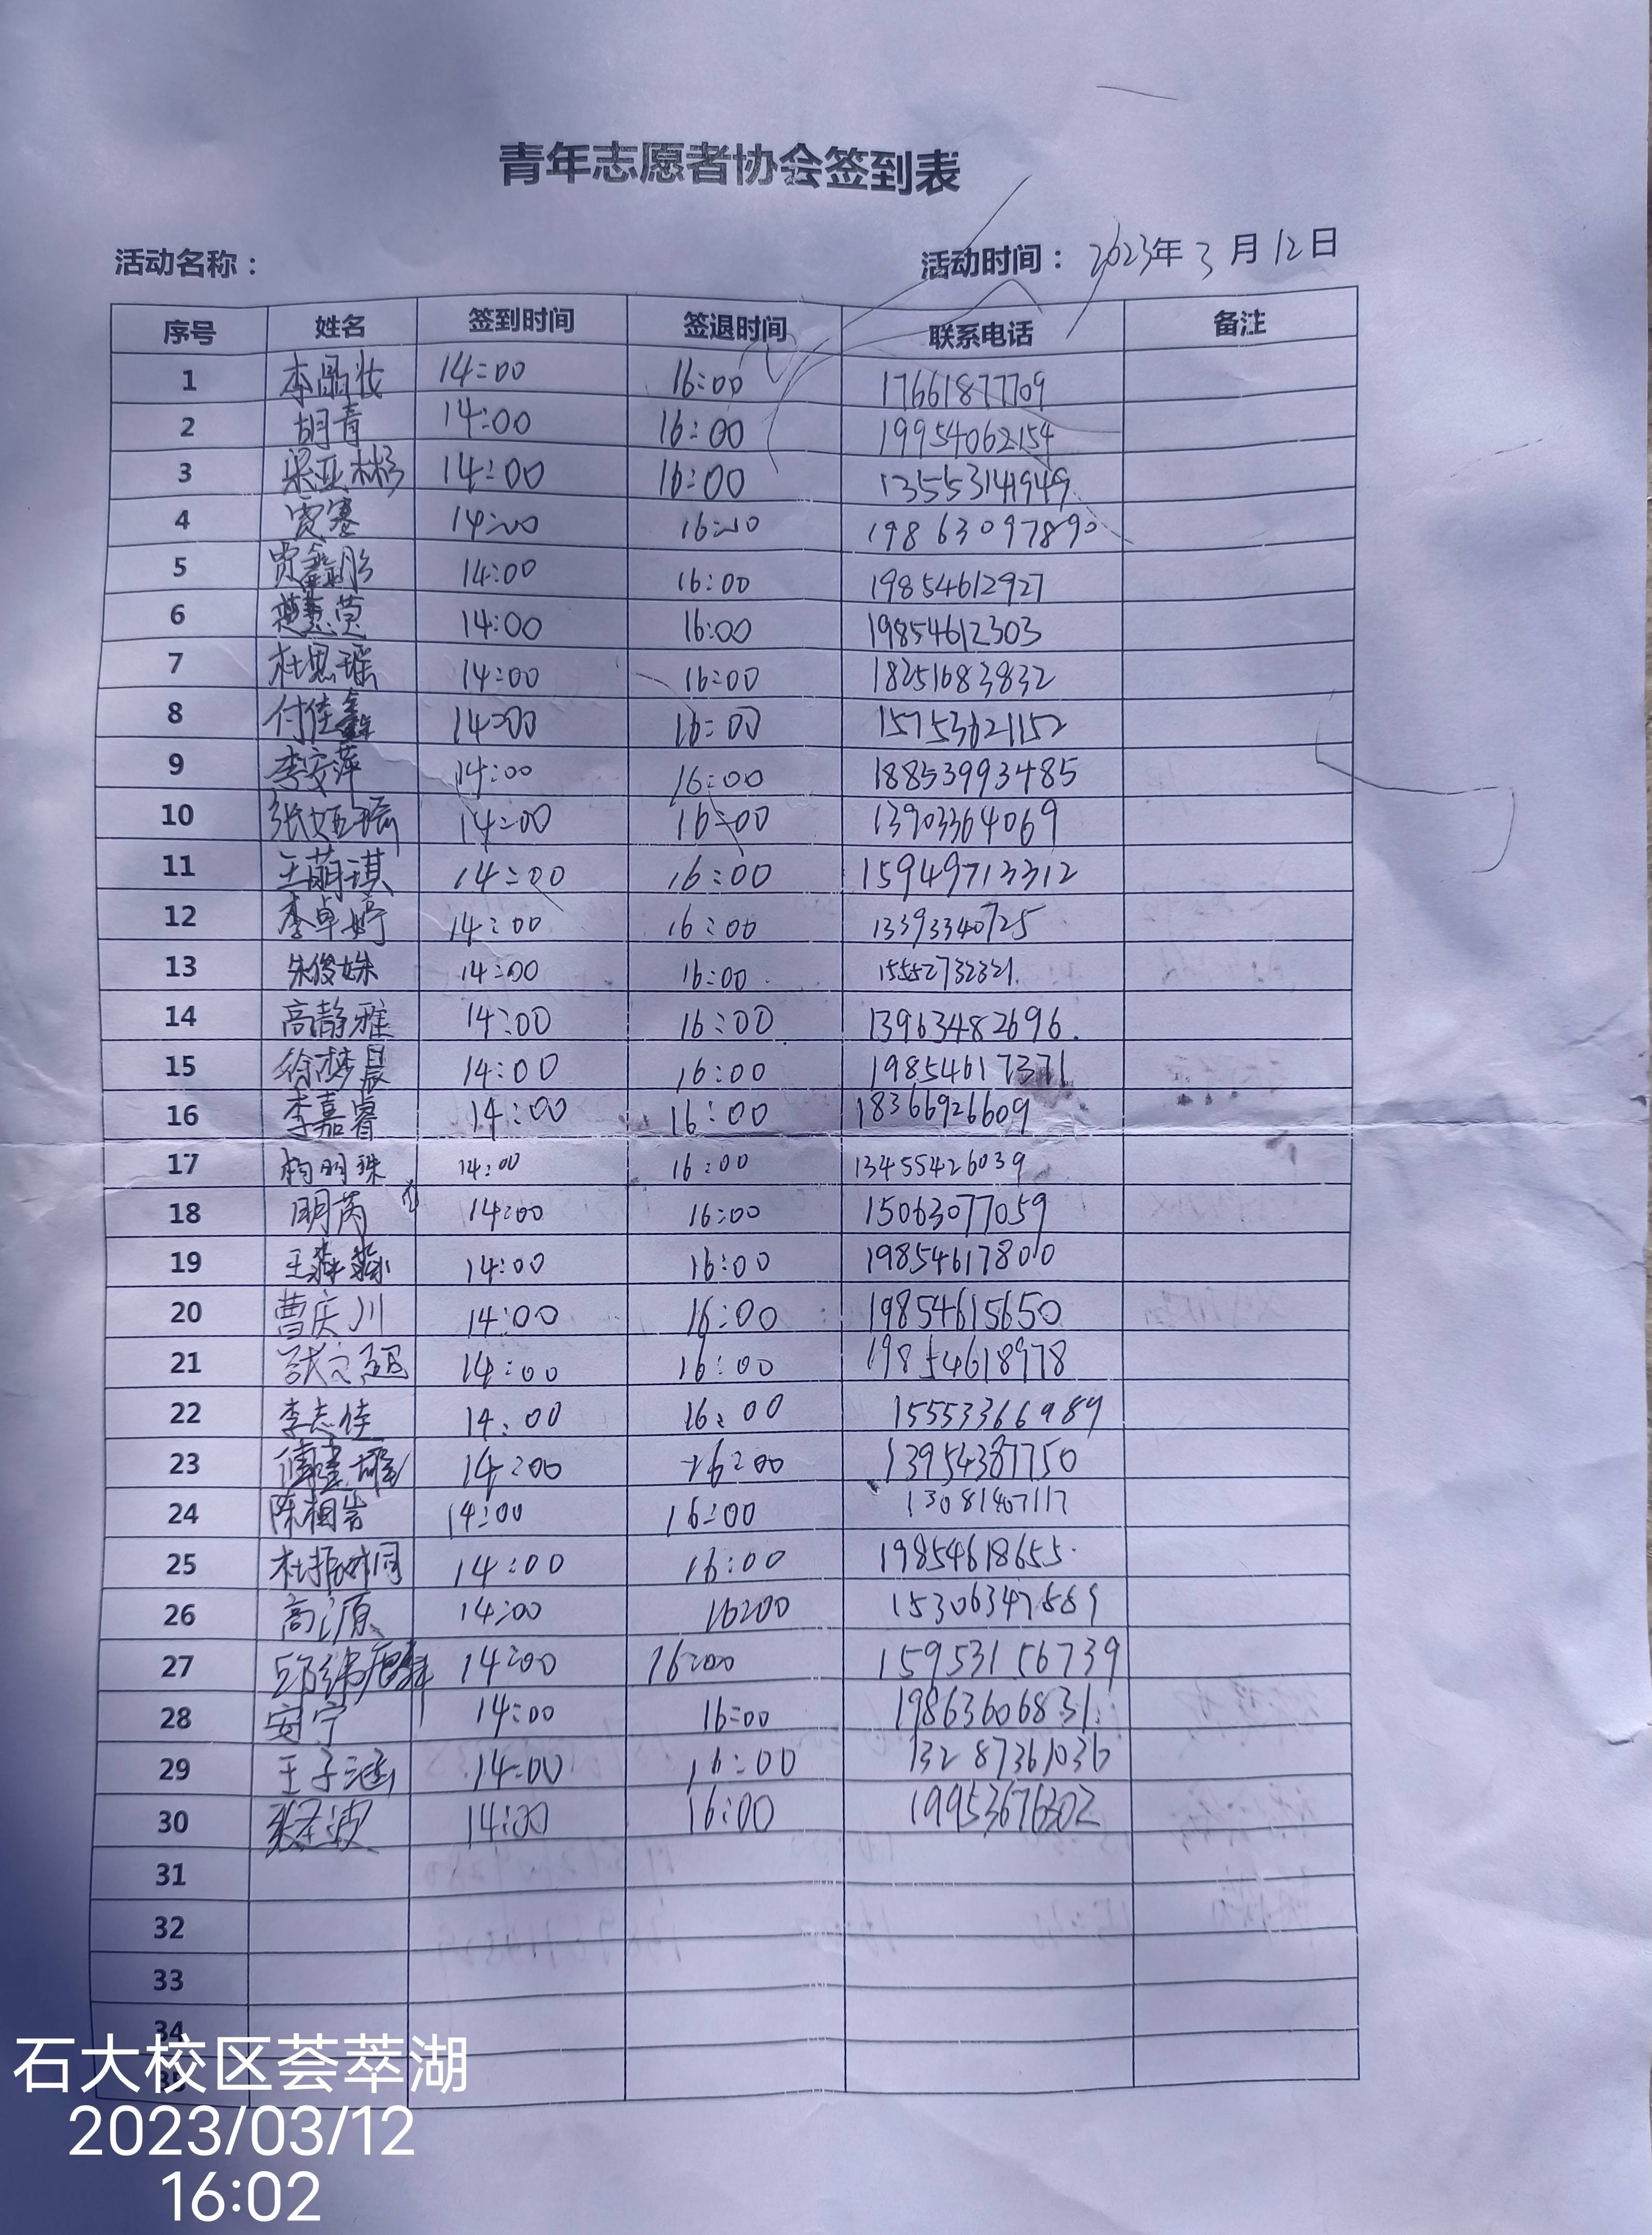 青年志愿者协会签到表
活动名称： 活动时间： 2023年3月12日
序号 姓名 签到时间 签退时间 联系电话 备注
1 李晶妆 14:00 16:00 17661877709
2 胡青 14:00 16:00 19954062154
3 梁亚彬 14:00 16:00 13553141949
4 贾骞 14:00 16:00 19863097890
5 贾鑫彤 14:00 16:00 19854612927
6 赵慧莹 14:00 16:00 19854612303
7 杜思瑶 14:00 16:00 18251683832
8 付佳鑫 14:00 16:00 15753621152
9 李安萍 14:00 16:00 18853993485
10 张娅瑶 14:00 16:00 13903364069
11 王萌琪 14:00 16:00 15949713312
12 李卓婷 14:00 16:00 13393340725
13 朱俊姝 14:00 16:00 15552732321
14 高静雅 14:00 16:00 13963482696
15 徐梦晨 14:00 16:00 19854617371
16 李嘉睿 14:00 16:00 18366926609
17 明珠 14:00 16:00 13455426039
18 明芮 14:00 16:00 15063077059
19 王淼淼 14:00 16:00 19854617800
20 曹庆川 14:00 16:00 19854615650
21 张 14:00 16:00 19854618978
22 李志佳 14:00 16:00 15553366989
23 14:00 16:00 13954387750
24 陈相岩 14:00 16:00 13081407117
25 杜振 14:00 16:00 19854618655
26 高源 14:00 16:00
27 邱 14:00 16:00 15953156739
28 安宁 14:00 16:00 19863606831
29 王子涵 14:00 16:00 13287361036
30 14:00 16:00 19953676302
31
32
33
34
35
石大校区荟萃湖
2023/03/12
16:02